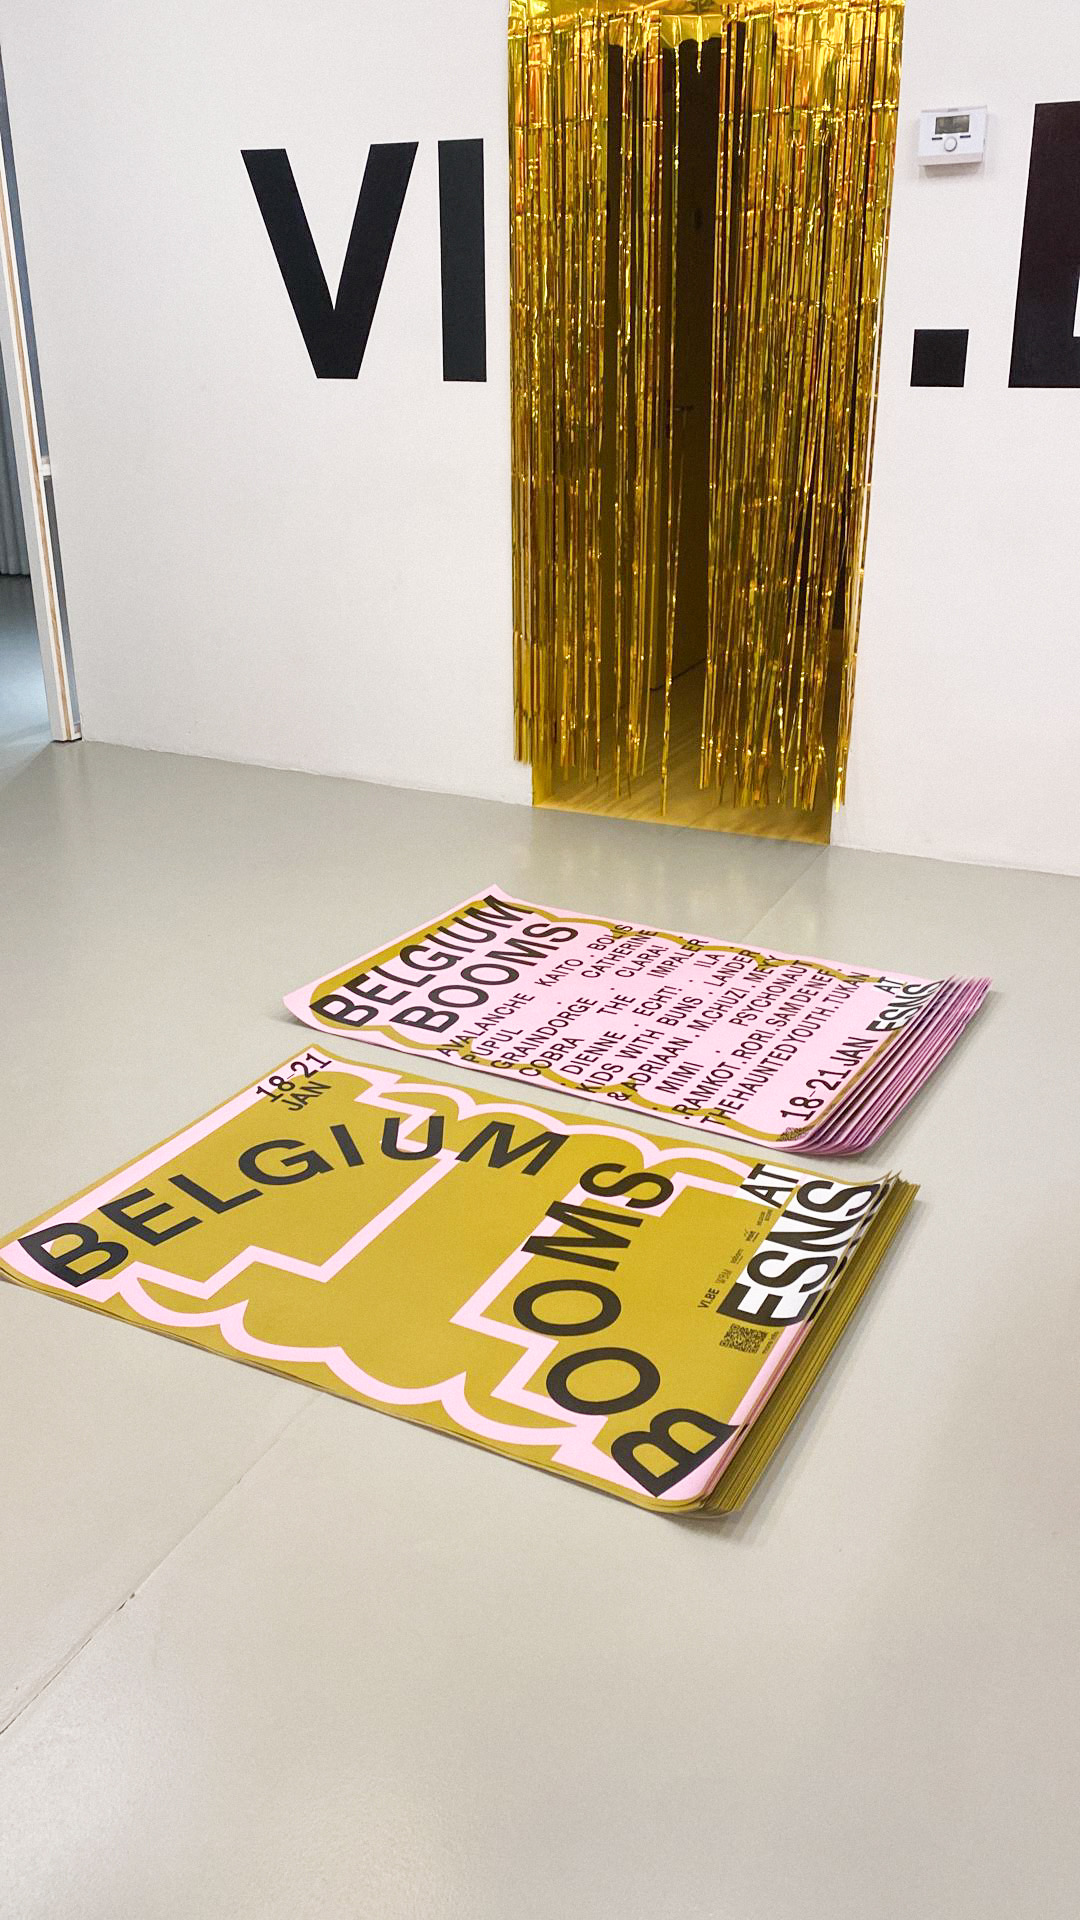 VI.
BELGIUM
BOOMS
AVALANCHE KAITO . BOLIS
PUPUL . CATHERINE
GRAINDORGE . CLARA!
COBRA THE IMPALER .
. DIENNE . ECHT! . ILA .
KIDS WITH BUNS . LANDER
& ADRIAAN . M.CHUZI . MEYY
. MIMI . PSYCHONAUT
. RAMKOT . RORI . SAM DE NEF .
THE HAUNTED YOUTH . TUKAN
18-21 JAN
AT
ESNS
18-21
JAN
BELGIUM
BOOMS
AT
ESNS
VI.BE